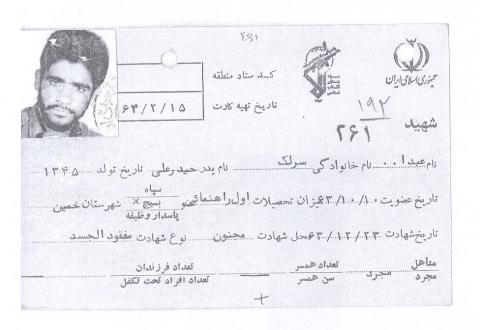 ۲۶۱
جمهوری اسلامی ایران
کد ستاد منطقه
تاریخ تهیه کارت ۶۴/۲/۱۵
شهید ۱۹۲
۲۶۱
نام عبدا... نام خانوادگی سرلک نام پدر حیدرعلی تاریخ تولد ۱۳۴۵
تاریخ عضویت ۶۳/۱۰/۱۰ میزان تحصیلات اول راهنمائی عضو سپاه بسیج × پاسدار وظیفه شهرستان خمین
تاریخ شهادت ۶۳/۱۲/۲۳ محل شهادت مجنون نوع شهادت مفقود الجسد
متاهل مجرد مجرد تعداد همسر سن همسر تعداد فرزندان تعداد افراد تحت تکفل